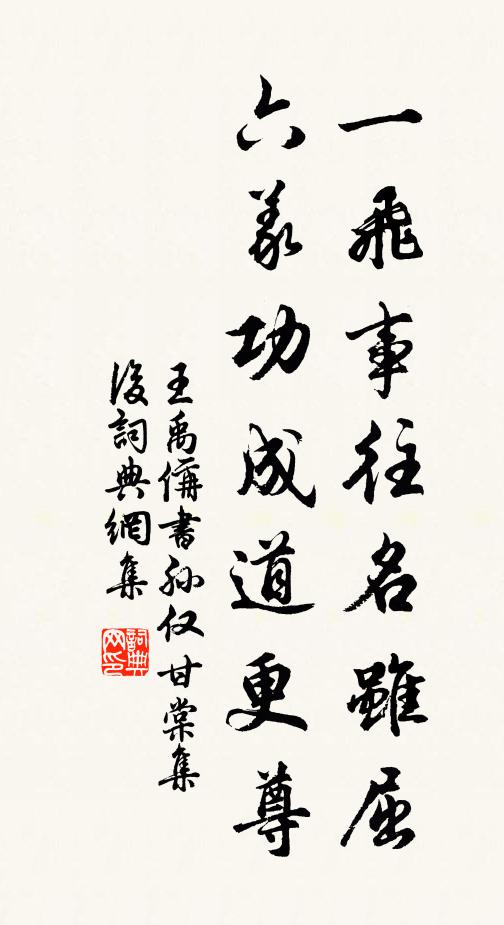 一飛事往名雖屈
六義功成道更尊
王禹偁書孙仅甘棠集
後詞典網集
詞典
网印